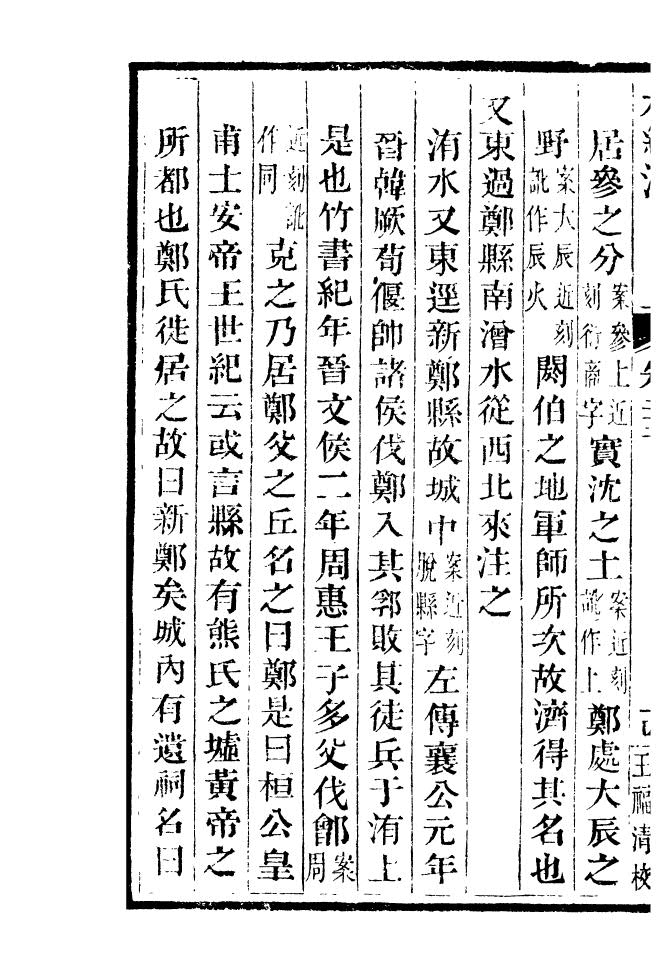 居參之分案參上近刻衍商字實沈之土案近刻訛作上鄭處大辰之
野案大辰近刻訛作辰火閼伯之地軍師所次故濟得其名也
又東過鄭縣南潧水從西北來注之
洧水又東逕新鄭縣故城中案近刻脫縣字左傳襄公元年
晉韓厥荀偃帥諸侯伐鄭入其郛敗其徒兵于洧上
是也竹書紀年晉文侯二年周惠王子多父伐鄶案周
近刻訛作同克之乃居鄭父之丘名之曰鄭是曰桓公皇
甫士安帝王世紀云或言縣故有熊氏之墟黃帝之
所都也鄭氏徙居之故曰新鄭矣城內有遺祠名曰
王福清校